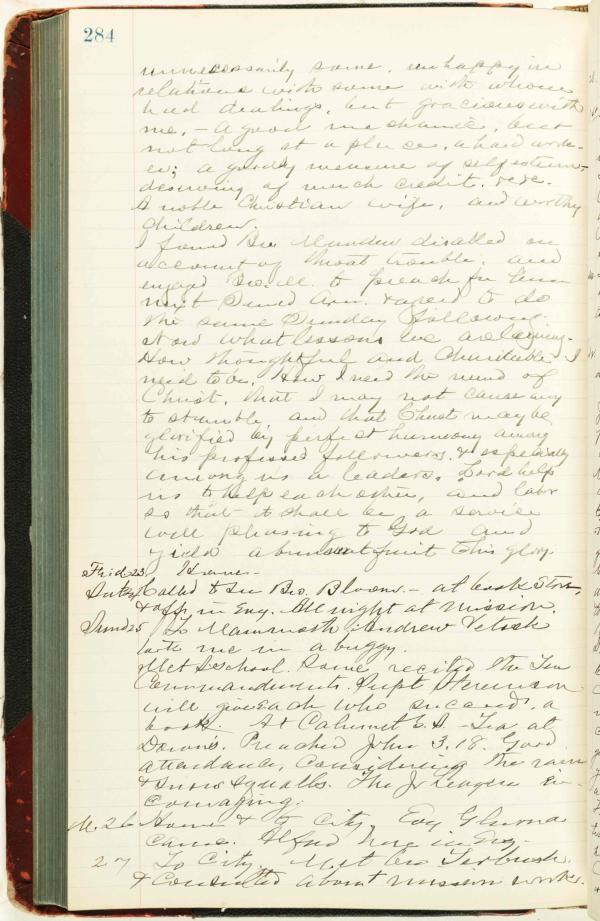 284
unnecessarily some, unhappy in
relations with some with whom
had dealings, but gracious with
me, - A good mechanic, but
not long at a place, a hard work-
er; a goodly measure of self esteem-
deserving of much credit. &c&c.
A noble Christian wife, and worthy
children.
I found Bro. Munden disabled on
account of throat trouble, and
engaged to preach for him
next Sund &agreed to do
the same Sunday following.
Now what lessons we are learning-
How thoughtful and Charitable I
need to be. How I need the mind of
Christ, that I may not cause any
to stumble, and that Christ may be
glorified by perfect harmony among
his professed followers, & especially
among us a leaders. Lord help
us to help each other, and labor
so that it shall be a service
well pleasing to God and
yield abundant fruit this glory.
Frid 23, Home -
Sat 24 Called to See Bro. Bloom. - at book Store,
& off in Evg. All night at Mission.
Sund 25 To Mammoth. Andrew
with me in a buggy.
Met S school. Some recited the Ten
Commandments. Supt
will give each who succeed, a
book - At Calumet - Tea at
Preached John 3.18. Good
attendance, Considering the rain
& Snow Squalls. The Jr League En-
couraging.
M. 26 Home & to City. Evg
Came. Alfred here in Evg.
27 To City. Met Bro
& Consulted about mission work.